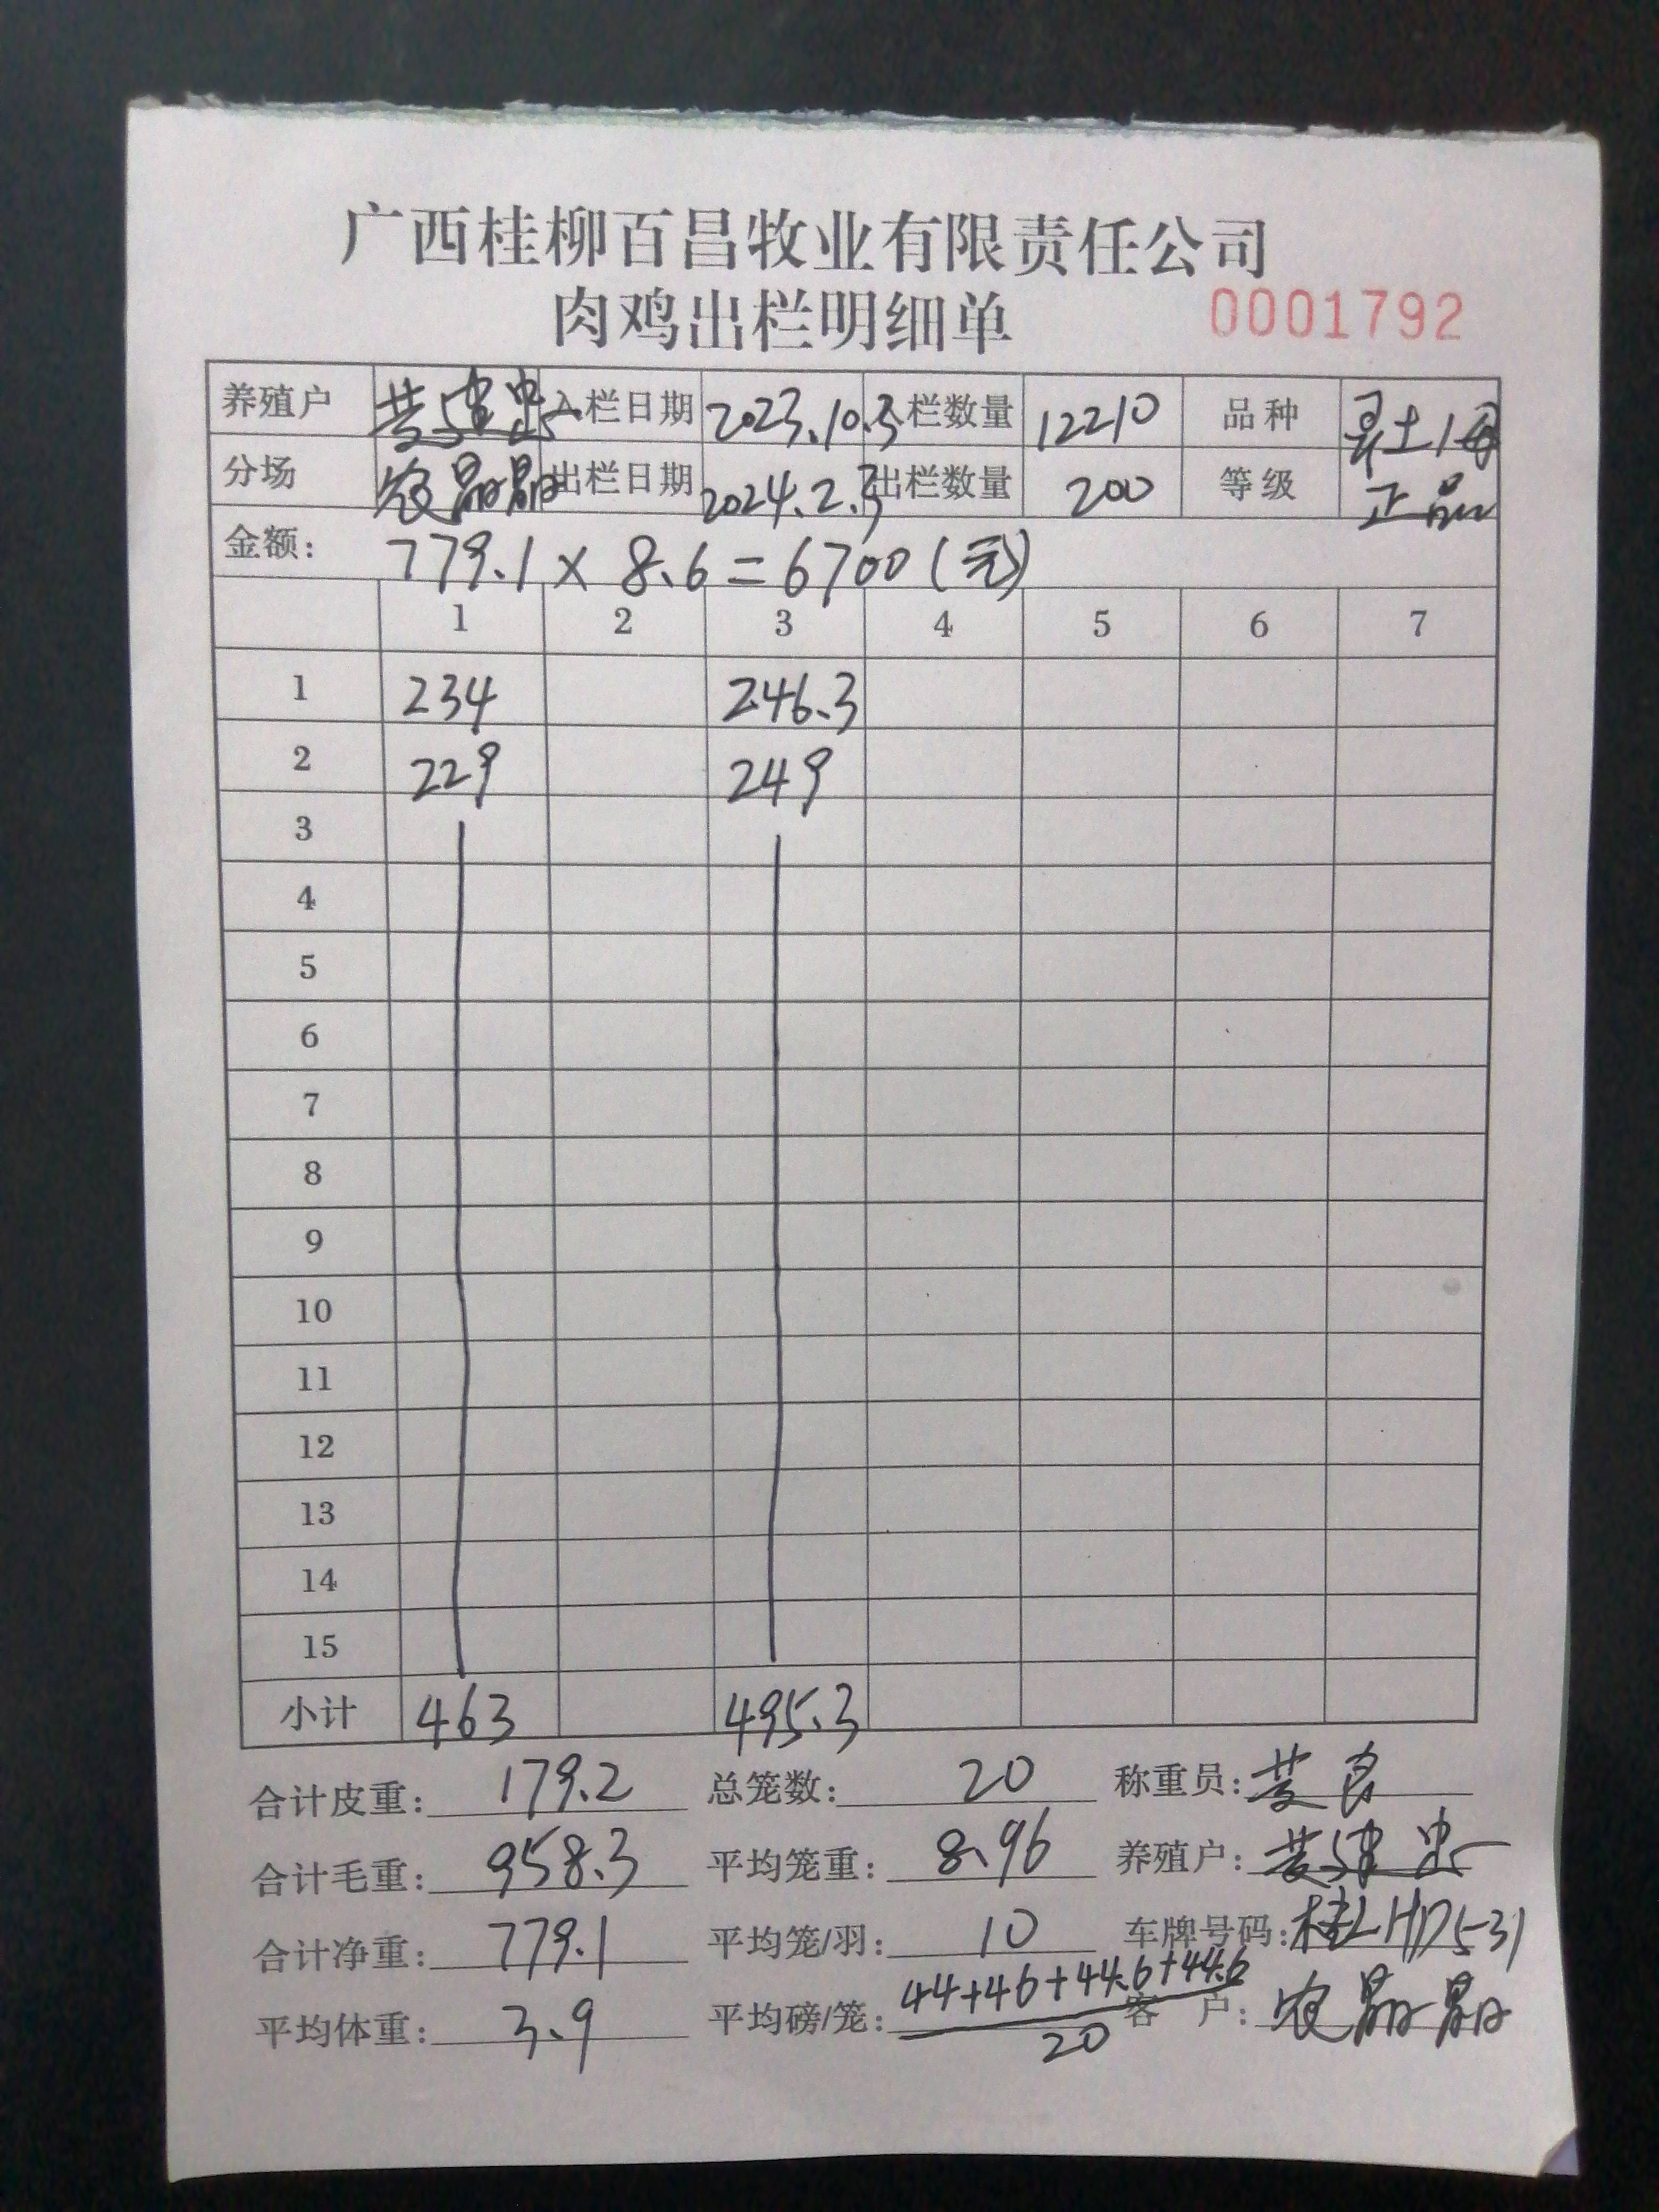 广西桂柳百昌牧业有限责任公司
肉鸡出栏明细单 0001792
养殖户 黄建忠 入栏日期 2023.10.3 入栏数量 12210 品种 灵土1母
分场 农晶晶 出栏日期 2024.2.3 出栏数量 200 等级 正品
金额: 779.1 × 8.6 = 6700 (元)
1 2 3 4 5 6 7
1 234 246.3
2 229 249
3
4
5
6
7
8
9
10
11
12
13
14
15
小计 463 495.3
合计皮重: 179.2 总笼数: 20 称重员:
合计毛重: 958.3 平均笼重: 8.96 养殖户: 黄建忠
合计净重: 779.1 平均笼/羽: 10 车牌号码: 桂LHD531
平均体重: 3.9 平均磅/笼: 44+46+44.6+44.6 客户: 农晶晶
20